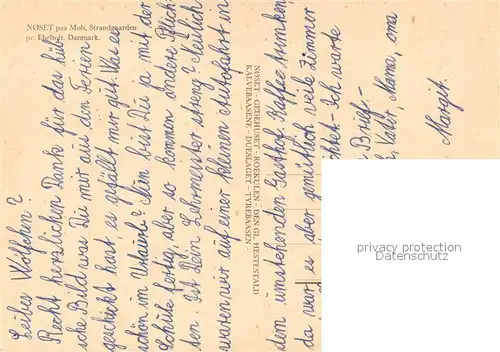 NØSET paa Mols, Strandgaarden
pr. Ebeltoft. Danmark.
NØSET - GEDEHUSET - ROEKULEN - DEN GL. HESTESTALD
KALVEBAASENE - DUESLAGET - TYREBAASEN -
Liebes Wölfchen?
Recht herzlichen Dank für das hüb-
sche Bild was Du mir aus den Ferien
geschickt hast, es gefällt mir gut. War es
schön im Urlaub? Nun bist Du ja mit der
Schule fertig, aber so kommen andre Pflich-
ten. Ist Dein Lehrmeister streng? Neulich
waren wir auf einer kleinen Autofahrt in
dem umstehenden Gasthof Kaffee trinken,
da war es aber gemütlich, viele Zimmer
Ich warte
Brief.-
Vater, Mama, Oma
Margit.
privacy protection
Datenschutz